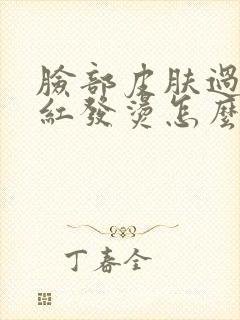 臉部皮肤過
紅發燙怎麼
丁春全